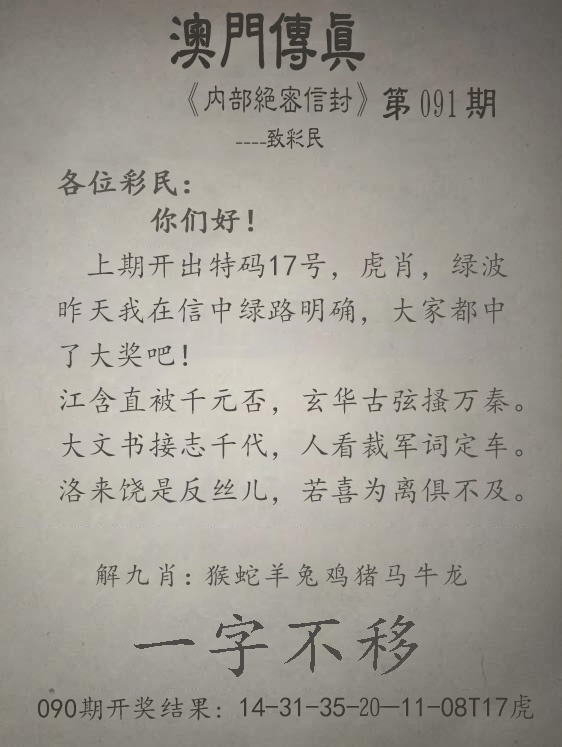 澳門傳真
《内部絕密信封》第091期
----致彩民
各位彩民：
你们好！
上期开出特码17号，虎肖，绿波
昨天我在信中绿路明确，大家都中
了大奖吧！
江含直被千元否，玄华古弦搔万秦。
大文书接志千代，人看裁军词定车。
洛来饶是反丝儿，若喜为离俱不及。
解九肖：猴蛇羊兔鸡猪马牛龙
一字不移
090期开奖结果：14-31-35-20—11-08T17虎